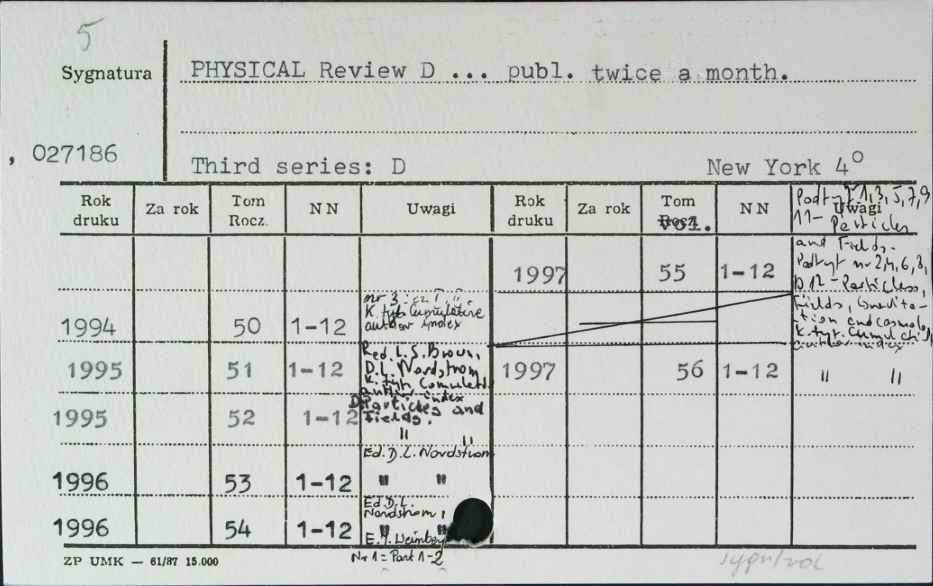 5
Sygnatura
PHYSICAL Review D ... publ. twice a month.
, 027186
Third series: D New York 4°
Rok druku Za rok Tom Rocz. NN Uwagi Rok druku Za rok Tom Vol. NN Uwagi
Podtyt 1,3,5,7,9
11- Particles
and Fields.
Podtyt nr 2,4,6,8,
12-Particles,
Fields, Gravita-
tion and cosmolo
K. tyt. Cumulative
author index
1997 55 1-12
1994 50 1-12
nr 3:
K. tyt. Cumulative
author index
1995 51 1-12
Red. L.S. Brown,
D.L. Nordstrom
K. tyt. Comulat.
author index
D Particles and
Fields.
1997 56 1-12 " "
1995 52 1-12
" "
Ed. D.L. Nordstrom
1996 53 1-12 " "
Ed D.L.
Nordstrom,
1996 54 1-12 " "
E.J. Weinberg
Nr 1 = Part 1-2
ZP UMK — 61/87 15.000